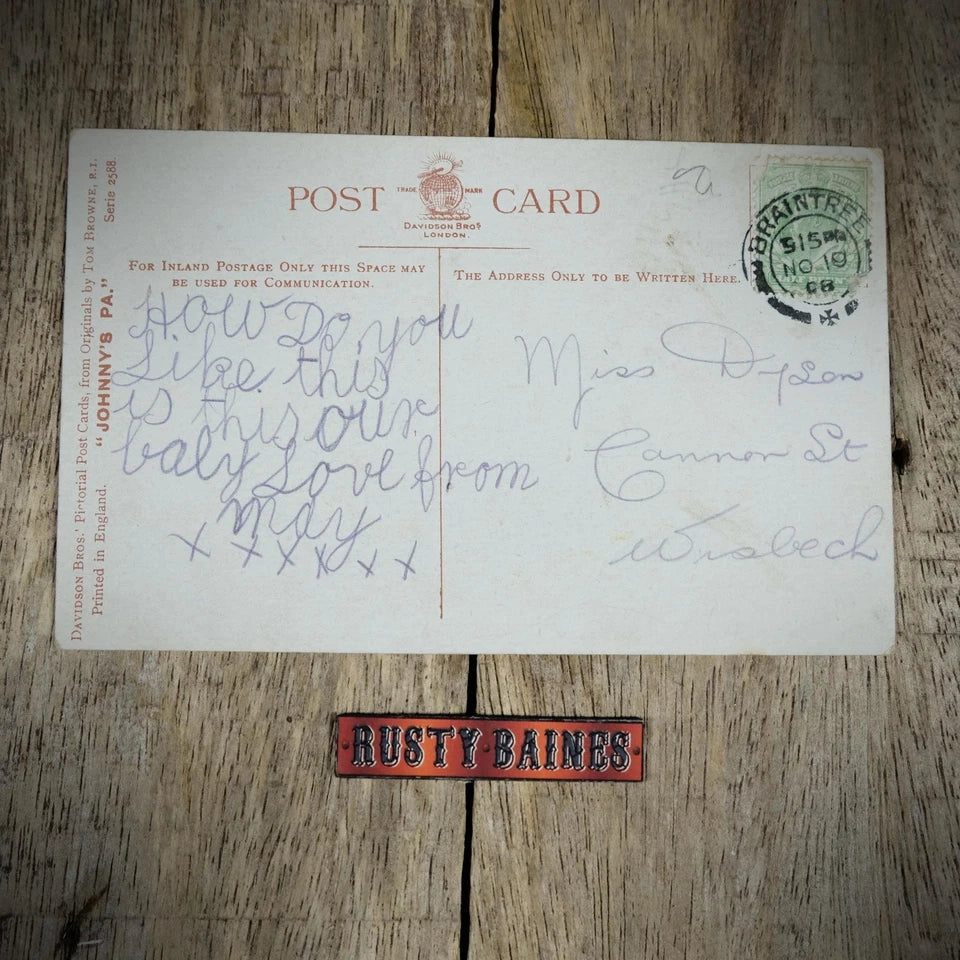 POST CARD
TRADE MARK
DAVIDSON BROS
LONDON.
FOR INLAND POSTAGE ONLY THIS SPACE MAY
BE USED FOR COMMUNICATION.
THE ADDRESS ONLY TO BE WRITTEN HERE.
BRAINTREE
515PM
NO 10
08
How Do you
Like this
is this our
baby Love from
may
x x x x x x
Miss Dyson
Cannon St
Wisbech
DAVIDSON BROS.' Pictorial Post Cards, from Originals by TOM BROWNE, R.I. Serie 2588.
Printed in England. "JOHNNY'S PA."
RUSTY BAINES